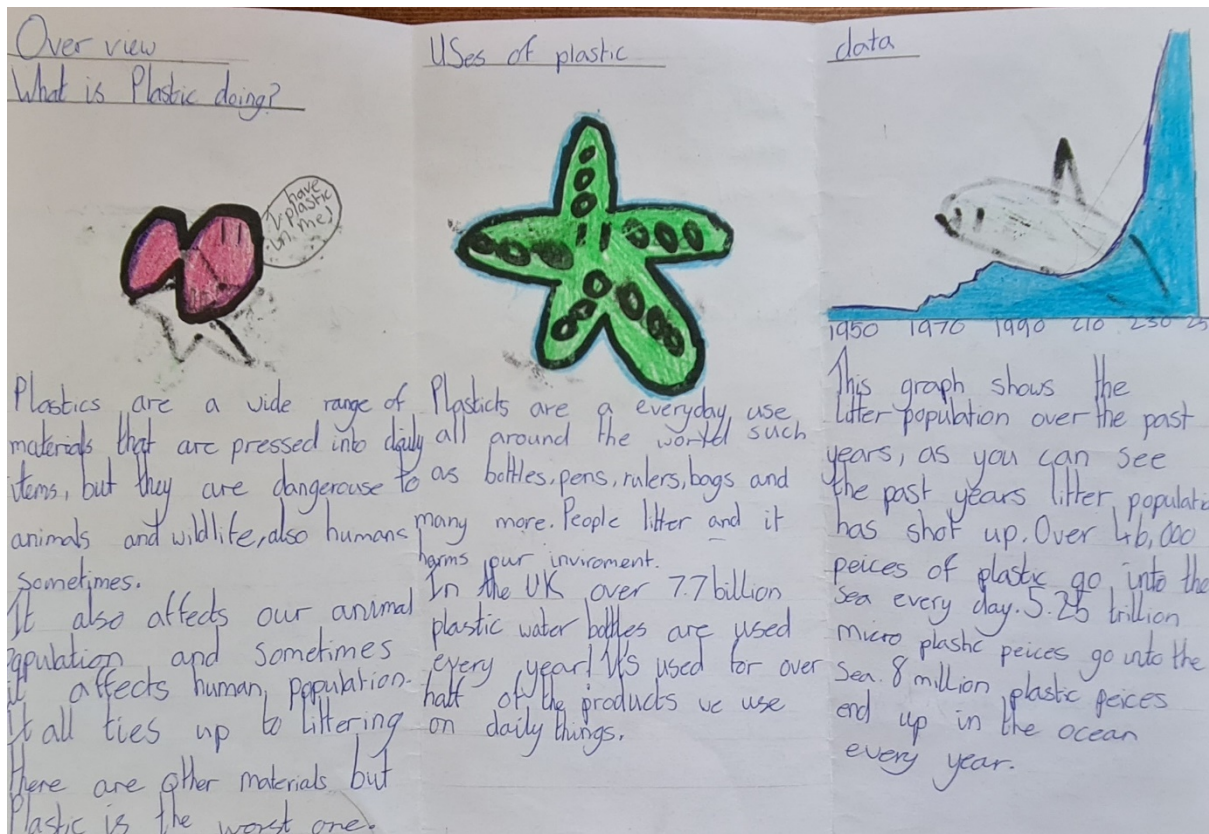 Over view
What is Plastic doing?
I have
plastic
in me!
Plastics are a wide range of
materials that are pressed into daily
items, but they are dangerouse to
animals and wildlife, also humans
sometimes.
It also affects our animal
population and sometimes
it affects human population.
It all ties up to littering
there are other materials but
Plastic is the worst one.
USes of plastic
Plasticts are a everyday use
all around the world such
as bottles, pens, rulers, bags and
many more. People litter and it
harms our inviroment.
In the UK over 7.7 billion
plastic water bottles are used
every year! It's used for over
half of the products we use
on daily things.
data
1950 1970 1990 210 230 25
This graph shows the
litter population over the past
years, as you can see
the past years litter populatio
has shot up. Over 46,000
peices of plastic go into the
sea every day. 5.25 trillion
micro plastic peices go into the
sea. 8 million plastic peices
end up in the ocean
every year.